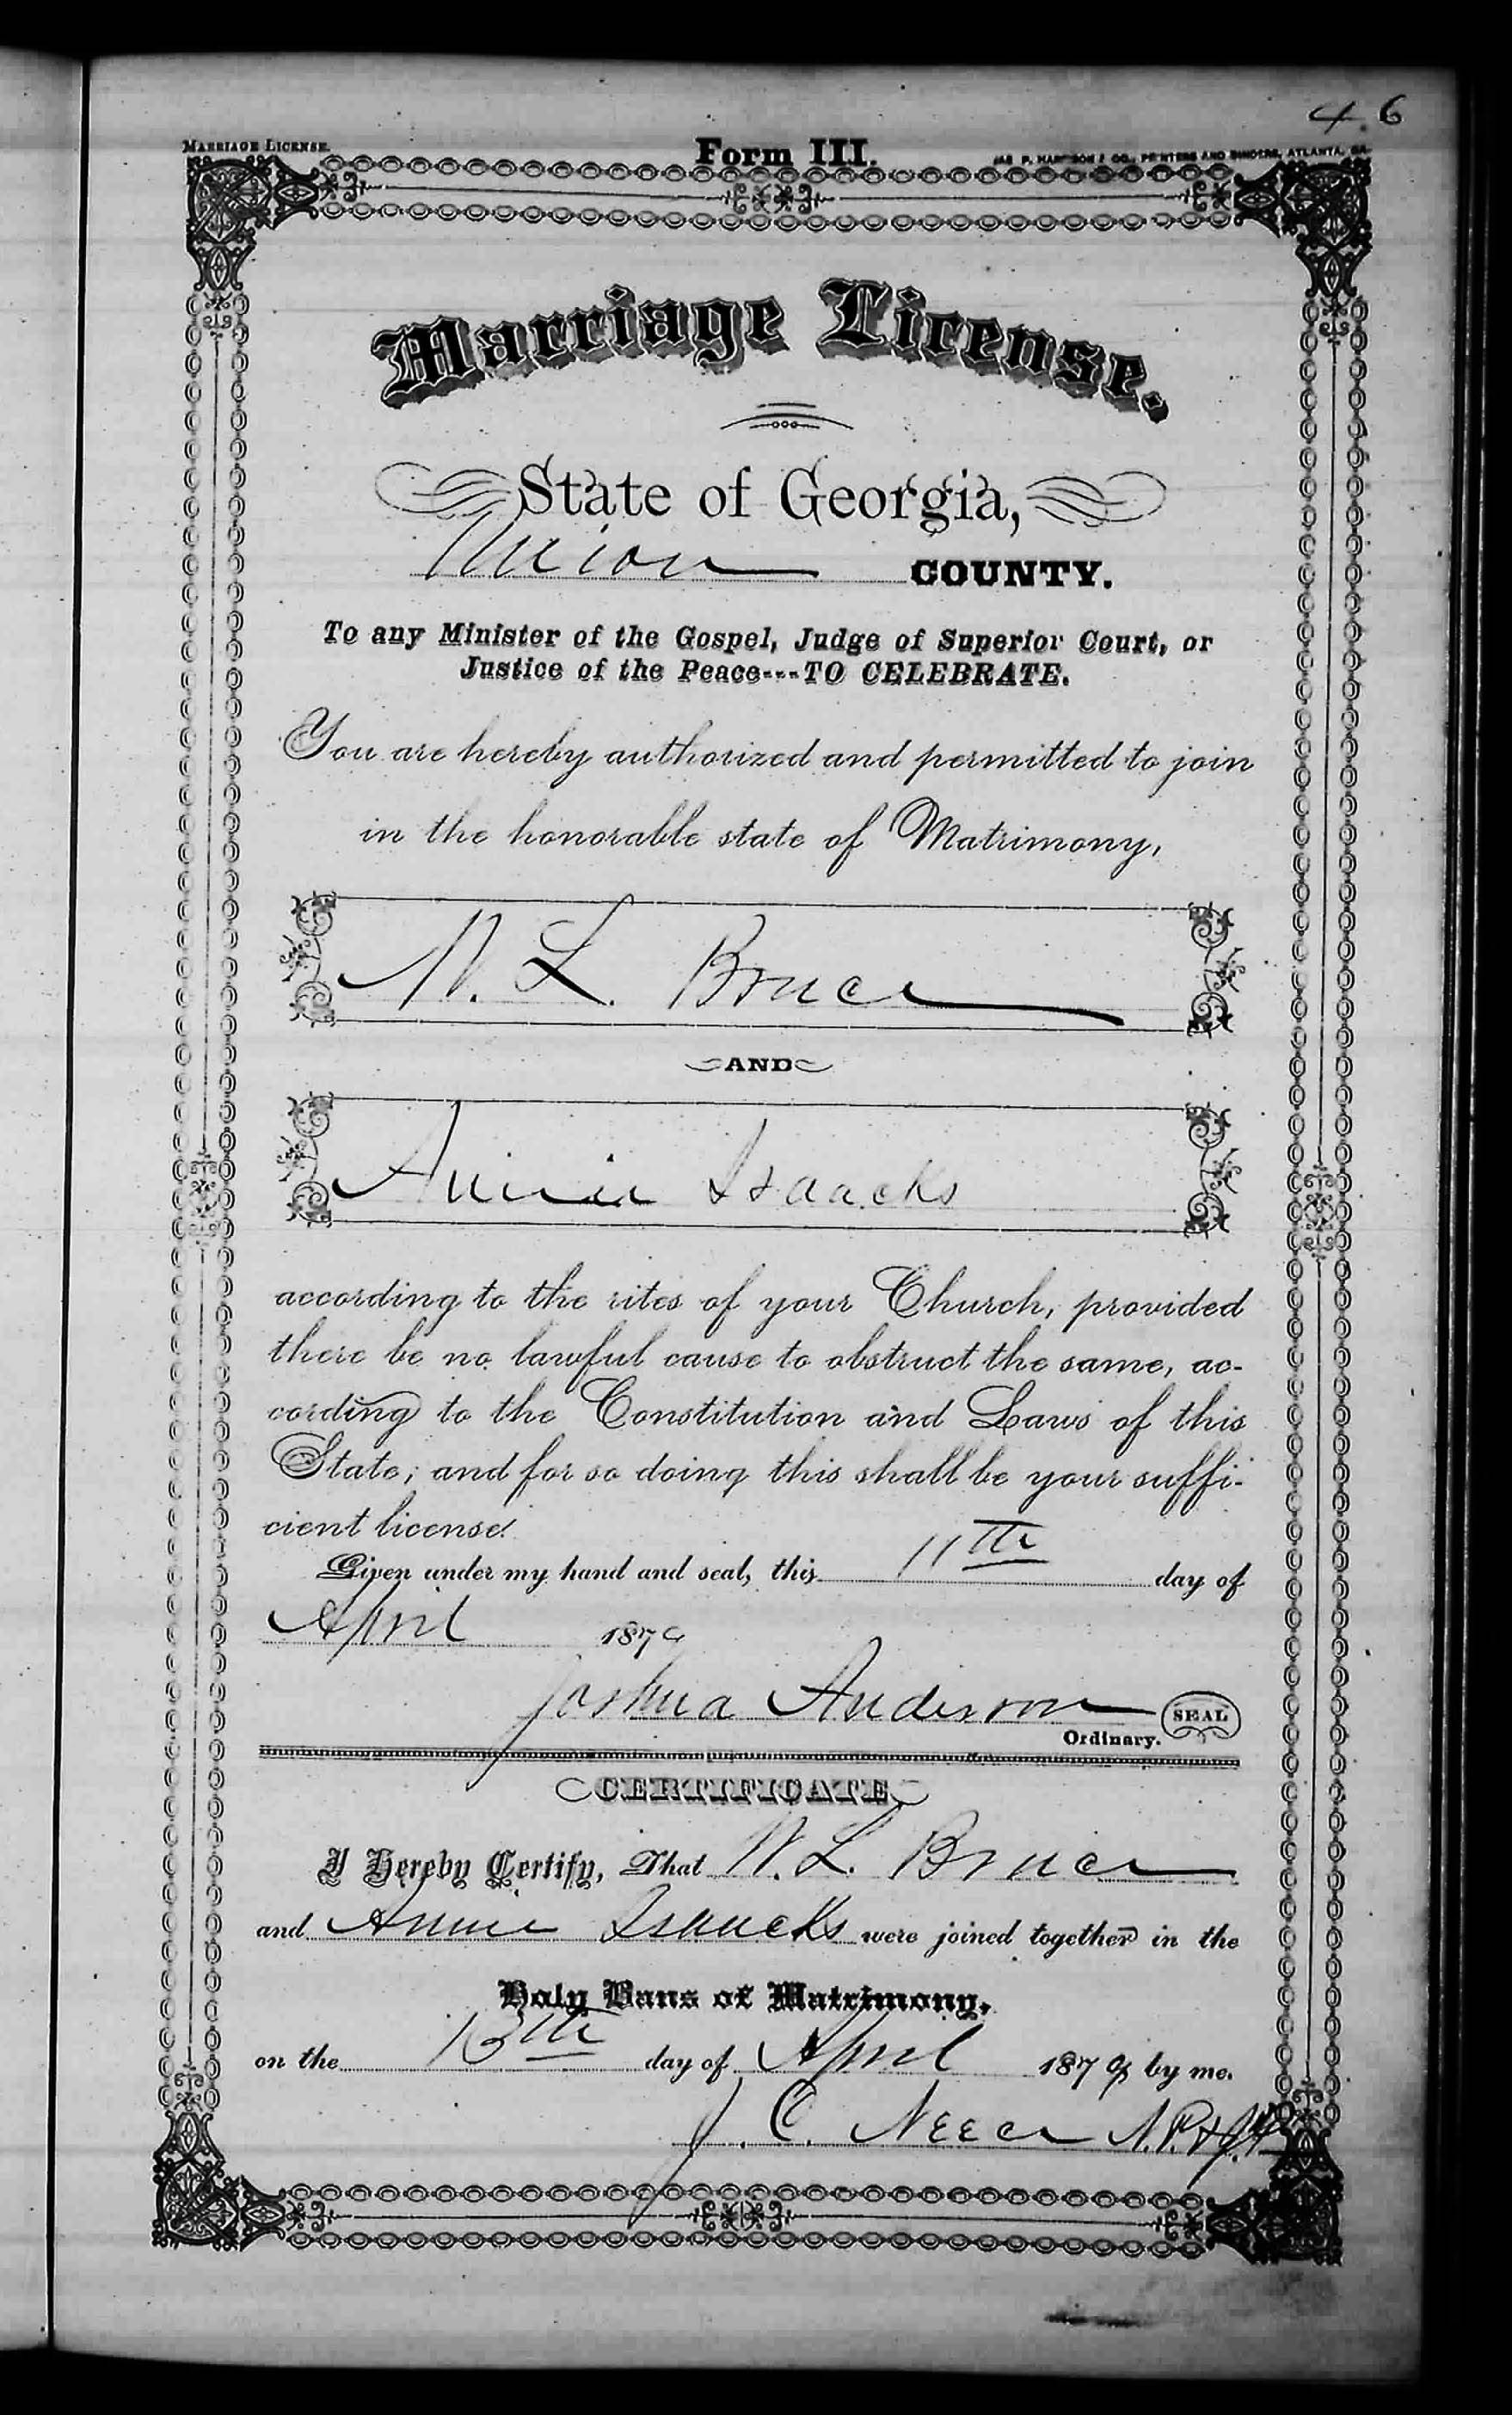 46
MARRIAGE LICENSE.
Form III.
JAS P. HARRISON & CO., PRINTERS AND BINDERS, ATLANTA, GA.
Marriage License.
State of Georgia,
Union COUNTY.
To any Minister of the Gospel, Judge of Superior Court, or
Justice of the Peace---TO CELEBRATE.
You are hereby authorized and permitted to join
in the honorable state of Matrimony,
W. L. Bruce
AND
Annie Isaacks
according to the rites of your Church, provided
there be no lawful cause to obstruct the same, ac-
cording to the Constitution and Laws of this
State; and for so doing this shall be your suffi-
cient license.
Given under my hand and seal, this 11th day of
April 1879
Joshua Anderson SEAL
Ordinary.
CERTIFICATE
I Hereby Certify, That W. L. Bruce
and Annie Isaacks were joined together in the
Holy Bans of Matrimony,
on the 13th day of April 1879 by me.
J. C. Neece N.P. & J.P.